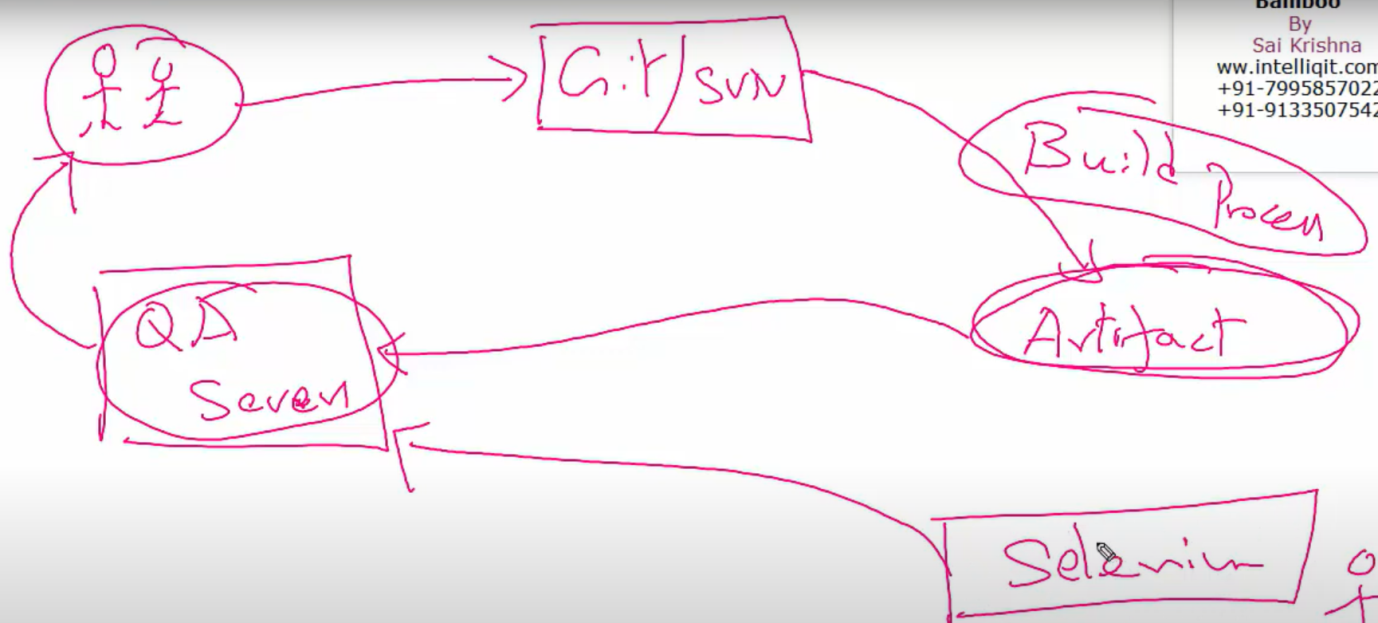 Bamboo
By
Sai Krishna
ww.intelliqit.com
+91-7995857022
+91-9133507542
Git/SVN
Build
Process
Artifact
QA
Server
Selenium